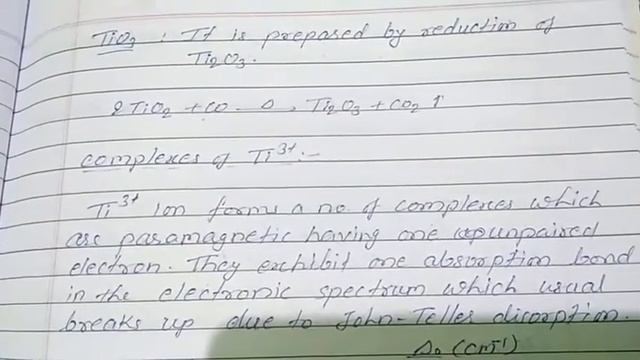 TiO3 : It is prepased by reduction of
Ti2O3.
2TiO2 + CO - Δ, Ti2O3 + CO2 ↑
complexes of Ti3+ :-
Ti3+ ion forms a no. of complexes which
are pasamagnetic having one upunpaired
electron. They exhibit one absorption bond
in the electronic spectrum which usual
breaks up due to John-Teller discorption.
Δo (cm-1)